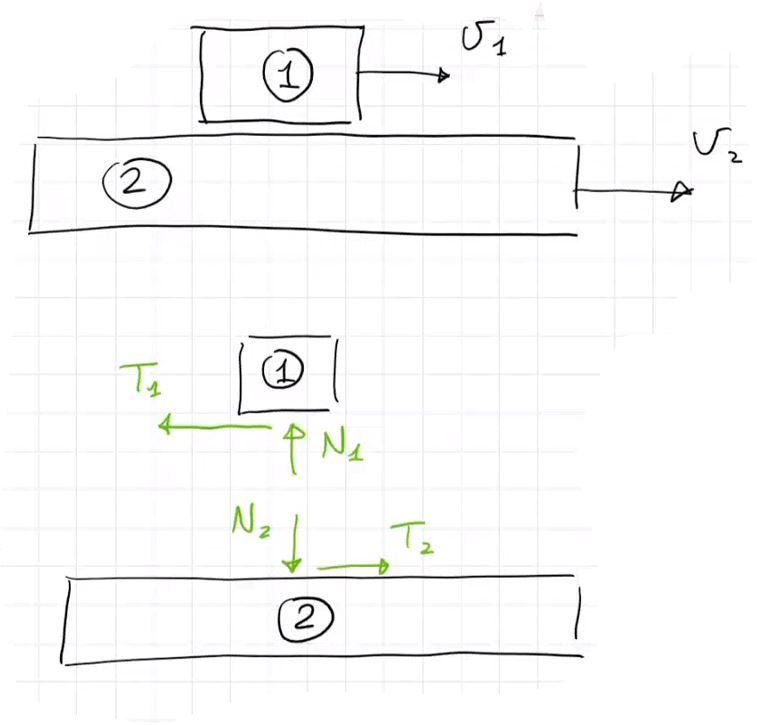 ① v₁
② v₂
①
T₁
N₁
N₂ T₂
②